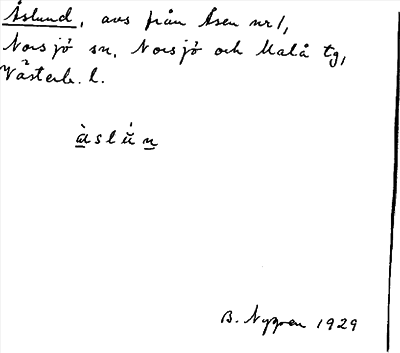 Åslund, avs från Åsen nr 1,
Norsjö sn. Norsjö och Malå tg,
Västerb. l.
àslŭ̀n
B. Nygren 1929